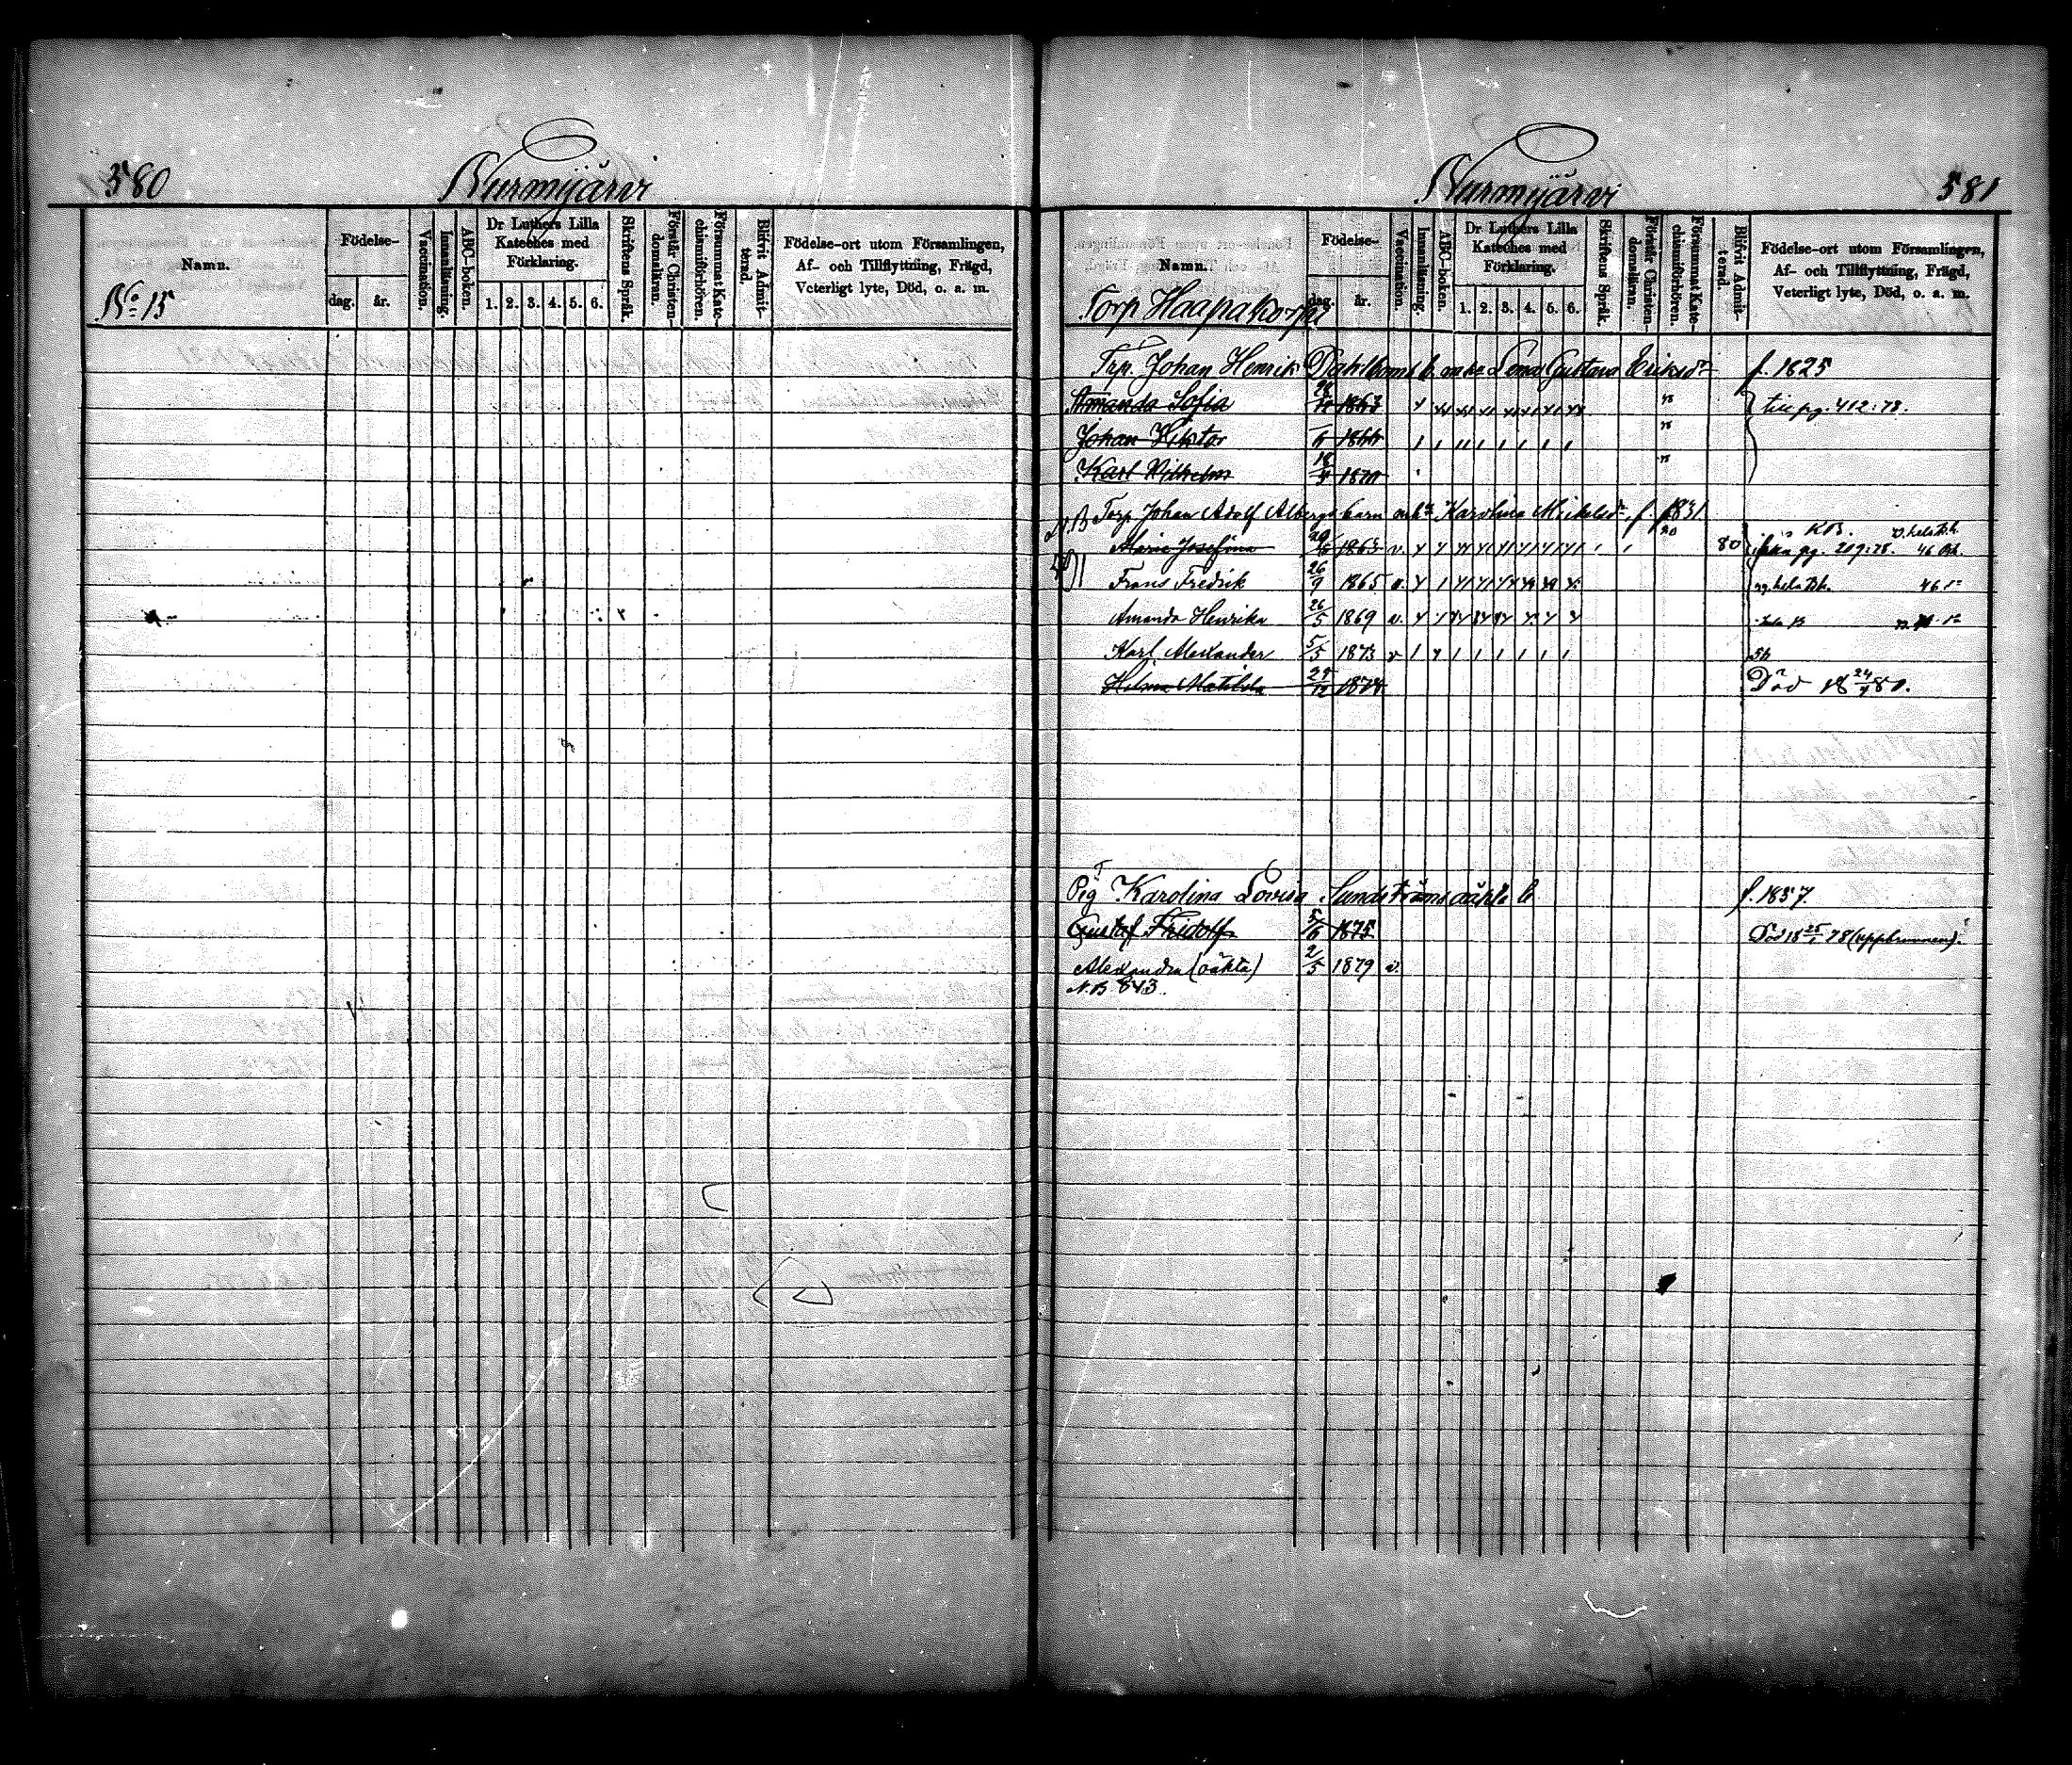 580
Nurmijärvi
Namn.
Födelse-
dag.
år.
Vaccination.
Innanläsning.
ABC-boken.
Dr Luthers Lilla
Kateches med
Förklaring.
1. 2. 3. 4. 5. 6.
Skriftens Språk.
Förstår Christen-
domsläran.
Försummat Kate-
chismiförhören.
Blifvit Admit-
terad.
Födelse-ort utom Församlingen,
Af- och Tillflyttning, Frägd,
Veterligt lyte, Död, o. a. m.
No 15
Nurmijärvi
581
Namn.
Födelse-
dag.
år.
Vaccination.
Innanläsning.
ABC-boken.
Dr Luthers Lilla
Kateches med
Förklaring.
1. 2. 3. 4. 5. 6.
Skriftens Språk.
Förstår Christen-
domsläran.
Försummat Kate-
chismiförhören.
Blifvit Admit-
terad.
Födelse-ort utom Församlingen,
Af- och Tillflyttning, Frägd,
Veterligt lyte, Död, o. a. m.
Torp Haapakorpi
Torp. Johan Henrik Dahlboms b. enka Lena Gustava Eriksdr f. 1825
Amanda Sofia 1863 till pg. 412:78.
Johan Viktor 1866
Karl Vilhelm 18 1870
Torp. Johan Adolf Albergs barn Karolina Mickelsdr f. 1831
Maria Josefina 1863 v. 80 pg. 219:78.
Frans Fredrik 26/9 1865 v.
Amanda Henrika 26/5 1869 v.
Karl Alexander 5/5 1873 v
Hilma Matilda 29/12 1878 Död 18 24/4 80.
Pig Karolina Lovisa Sundströms oäkta b f. 1857.
Gustaf Fridolf 5/6 1875 Död 18 25/1 78 (uppbrunnen).
Alexandra (oäkta) 2/5 1879 v.
N.B 843.